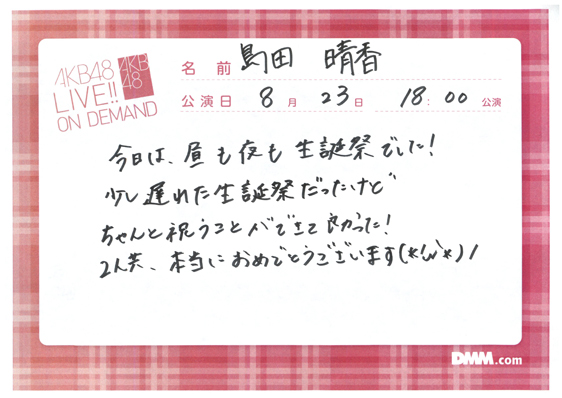 AKB48
LIVE!!
ON DEMAND
AKB
48
名 前 島田 晴香
公演日 8月 23日 18:00 公演
今日は、昼も夜も生誕祭でした!
少し遅れた生誕祭だったけど
ちゃんと祝うことができて良かった!
2人共、本当におめでとうございます(*'ω'*)/
DMM.com